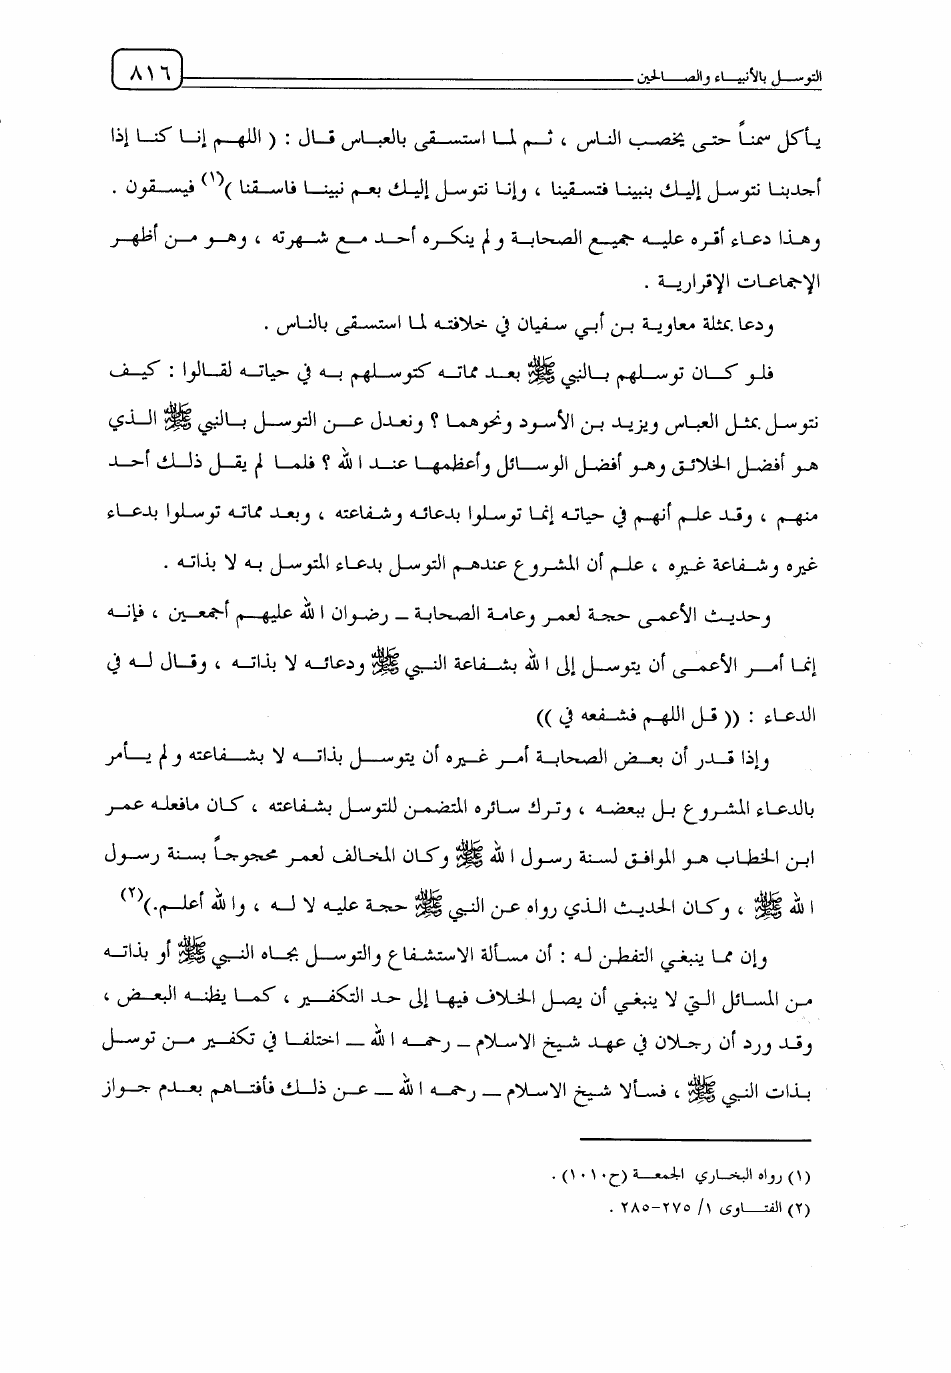 التوسل بالأنبياء والصالحين ٨١٦
يأكل سمناً حتى يخصب الناس ، ثم لما استسقى بالعباس قال : ( اللهم إنا كنا إذا
أجدبنا نتوسل إليك بنبينا فتسقينا ، وإنا نتوسل إليك بعم نبينا فاسقنا )(١) فيسقون .
وهذا دعاء أقره عليه جميع الصحابة و لم ينكره أحد مع شهرته ، وهو من أظهر
الإجماعات الإقرارية .
ودعا بمثلة معاوية بن أبي سفيان في خلافته لما استسقى بالناس .
فلو كان توسلهم بالنبي ﷺ بعد مماته كتوسلهم به في حياته لقالوا : كيف
نتوسل بمثل العباس ويزيد بن الأسود ونحوهما ؟ ونعدل عن التوسل بالنبي ﷺ الذي
هو أفضل الخلائق وهو أفضل الوسائل وأعظمها عند الله ؟ فلما لم يقل ذلك أحد
منهم ، وقد علم أنهم في حياته إنما توسلوا بدعائه وشفاعته ، وبعد مماته توسلوا بدعاء
غيره وشفاعة غيره ، علم أن المشروع عندهم التوسل بدعاء المتوسل به لا بذاته .
وحديث الأعمى حجة لعمر وعامة الصحابة – رضوان الله عليهم أجمعين ، فإنه
إنما أمر الأعمى أن يتوسل إلى الله بشفاعة النبي ﷺ ودعائه لا بذاته ، وقال له في
الدعاء : (( قل اللهم فشفعه في ))
وإذا قدر أن بعض الصحابة أمر غيره أن يتوسل بذاته لا بشفاعته و لم يأمر
بالدعاء المشروع بل ببعضه ، وترك سائره المتضمن للتوسل بشفاعته ، كان مافعله عمر
ابن الخطاب هو الموافق لسنة رسول الله ﷺ وكان المخالف لعمر محجوجاً بسنة رسول
الله ﷺ ، وكان الحديث الذي رواه عن النبي ﷺ حجة عليه لا له ، والله أعلم.)(٢)
وإن مما ينبغي التفطن له : أن مسألة الاستشفاع والتوسل بجاه النبي ﷺ أو بذاته
من المسائل التي لا ينبغي أن يصل الخلاف فيها إلى حد التكفير ، كما يظنه البعض ،
وقد ورد أن رجلان في عهد شيخ الاسلام – رحمه الله – اختلفا في تكفير من توسل
بذات النبي ﷺ ، فسألا شيخ الاسلام – رحمه الله – عن ذلك فأفتاهم بعدم جواز
(١) رواه البخاري الجمعة (ح١٠١٠) .
(٢) الفتاوى ١/ ٢٧٥-٢٨٥ .